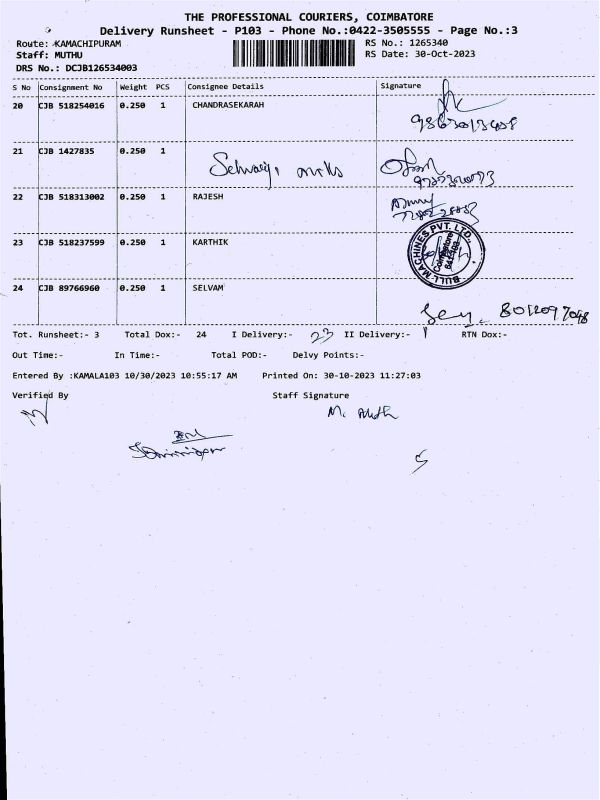 THE PROFESSIONAL COURIERS, COIMBATORE
Delivery Runsheet - P103 - Phone No.:0422-3505555 - Page No.:3
Route: KAMACHIPURAM RS No.: 1265340
Staff: MUTHU RS Date: 30-Oct-2023
DRS No.: DCJB126534003
S No Consignment No Weight PCS Consignee Details Signature
20 CJB 518254016 0.250 1 CHANDRASEKARAH
21 CJB 1427835 0.250 1
22 CJB 518313002 0.250 1 RAJESH
23 CJB 518237599 0.250 1 KARTHIK
BULL MACHINES PVT. LTD.
Coimbatore
24 CJB 89766960 0.250 1 SELVAM
8012097048
Tot. Runsheet:- 3 Total Dox:- 24 I Delivery:- 23 II Delivery:- 1 RTN Dox:-
Out Time:- In Time:- Total POD:- Delvy Points:-
Entered By :KAMALA103 10/30/2023 10:55:17 AM Printed On: 30-10-2023 11:27:03
Verified By Staff Signature